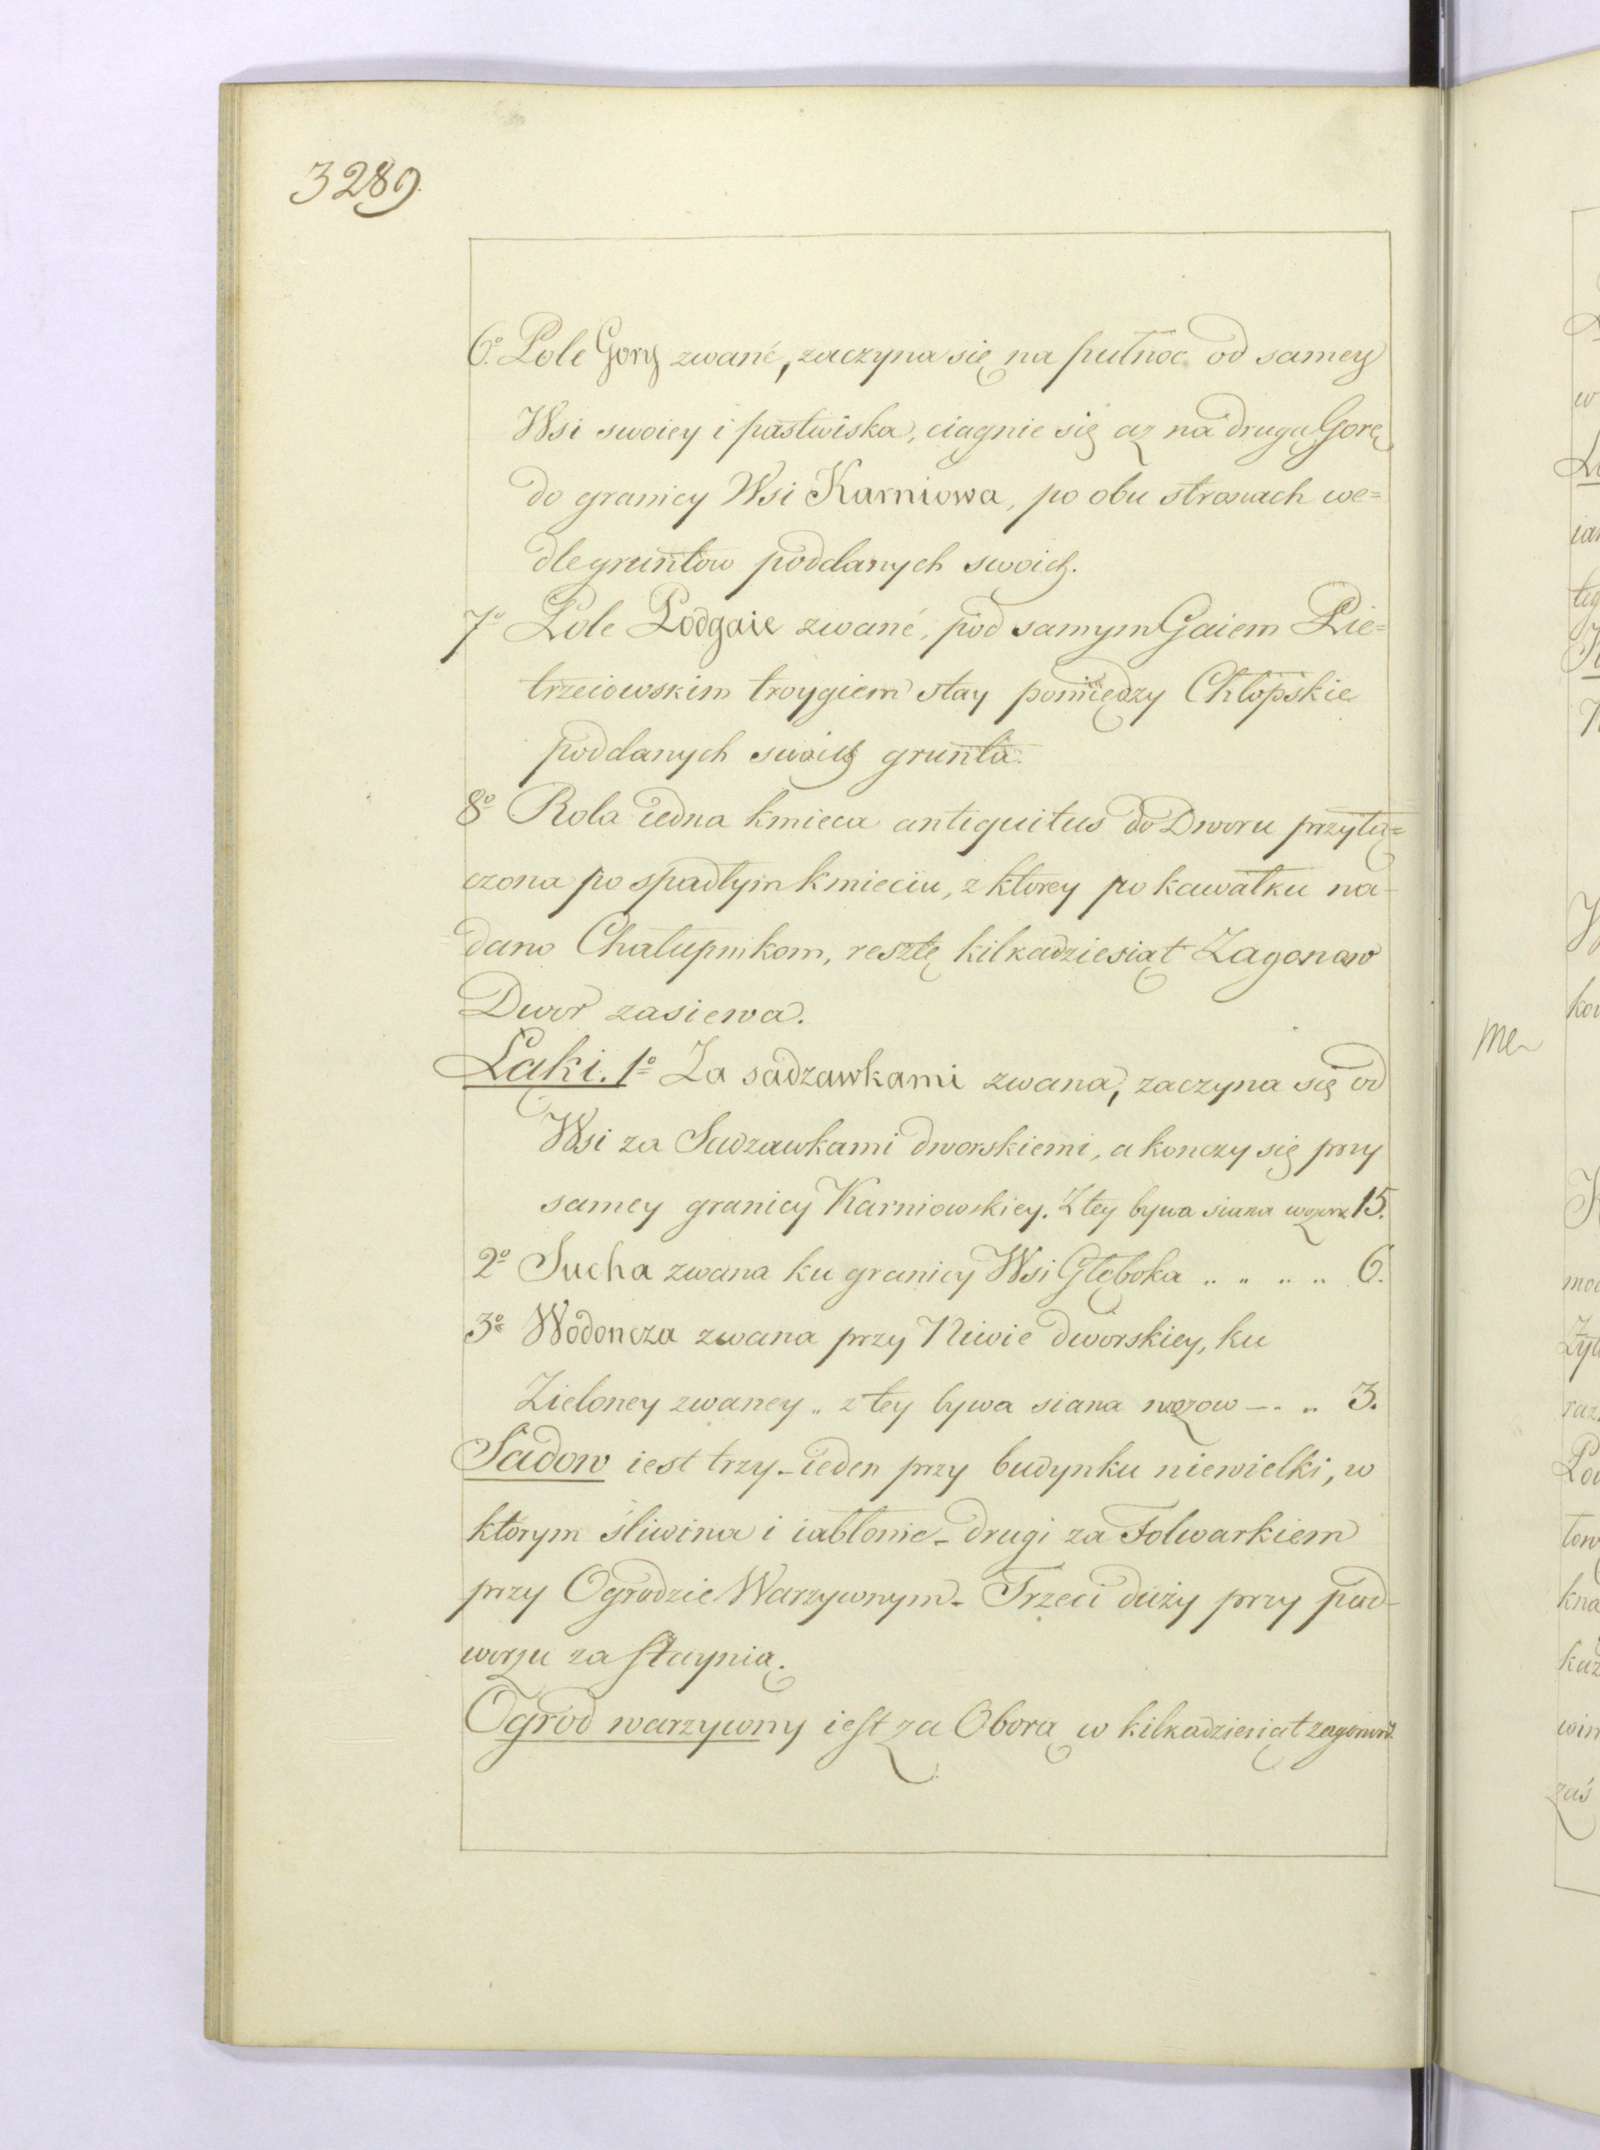 3289.
6º Pole Gory zwané, zaczyna się na pułnoc od samey
Wsi swoiey i pastwiska, ciagnie się aż na drugą Gorę
do granicy Wsi Karniowa, po obu stronach we=
dle gruntow poddanych swoich.
7º Pole Podgaie zwané, pod samym Gaiem Pie=
trzeiowskim troygiem stay pomiędzy Chłopskie
poddanych swoich grunta.
8º Rola iedna kmieca antiquitus do Dworu przyłą=
czona po spadłym kmieciu, z ktorey po kawałku na-
dano Chałupnikom, resztę kilkadziesiąt Zagonow
Dwor zasiewa.
Łąki. 1º Za sadzawkami zwana, zaczyna się od
Wsi za Sadzawkami dworskiemi, a konczy się przy
samey granicy Karniowskiey. Z tey bywa siana wozow 15.
2º Sucha zwana ku granicy Wsi Głęboka „ „ „ „ 6.
3º Wodoncza zwana przy Niwie dworskiey, ku
Zieloney zwaney „ z tey bywa siana wozow —. „ 3.
Sadow iest trzy - ieden przy budynku niewielki, w
ktorym śliwina i iabłonie - drugi za Folwarkiem
przy Ogrodzie Warzywnym - Trzeci duży przy pod-
worzu za staynią.
Ogrod warzywny iest za Oborą w kilkadziesiąt zagonow.